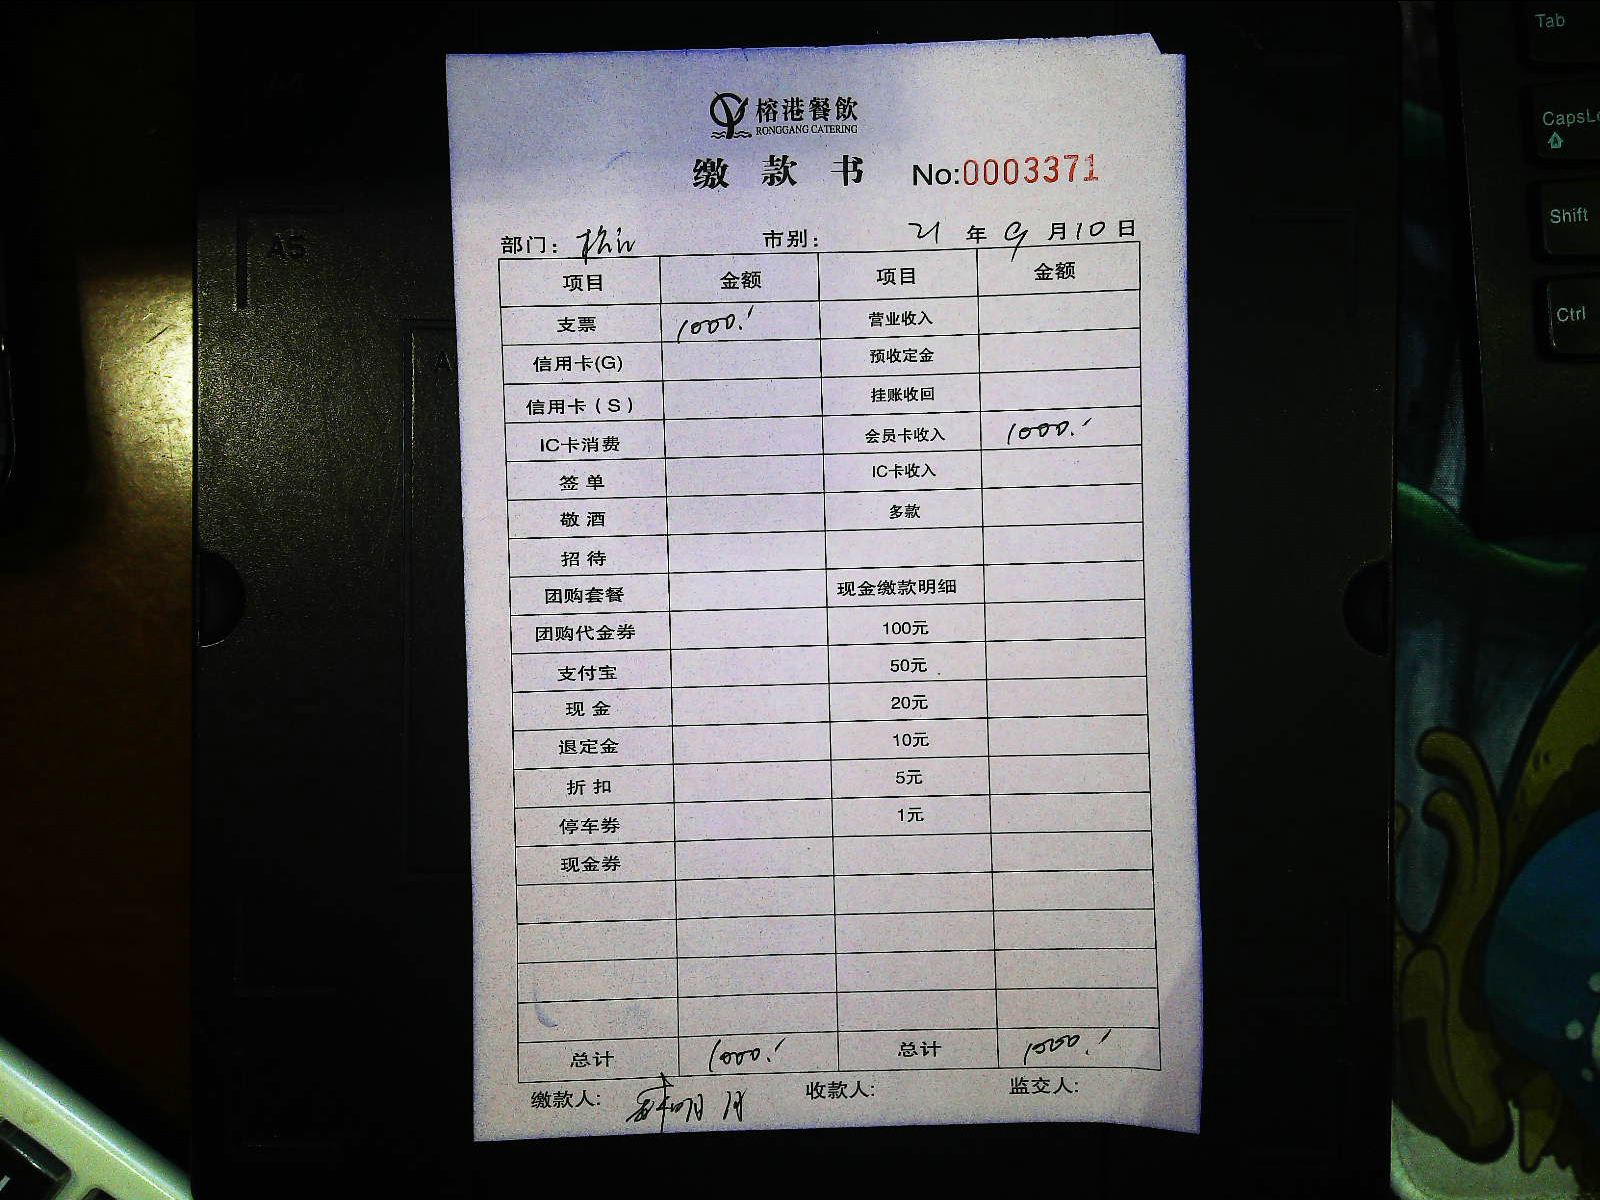 榕港餐飲
RONGGANG CATERING
缴款书 No:0003371
部门: 市别: 21年9月10日
项目 金额 项目 金额
支票 1000.- 营业收入
信用卡(G) 预收定金
信用卡(S) 挂账收回
IC卡消费 会员卡收入 1000.-
签单 IC卡收入
敬酒 多款
招待
团购套餐 现金缴款明细
团购代金券 100元
支付宝 50元
现金 20元
退定金 10元
折扣 5元
停车券 1元
现金券
总计 1000.- 总计 1000.-
缴款人: 收款人: 监交人:
Tab
CapsLo
Shift
Ctrl
A5